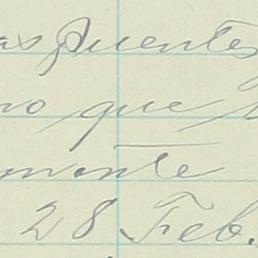 as fuentes
no que
mente
28 Feb.